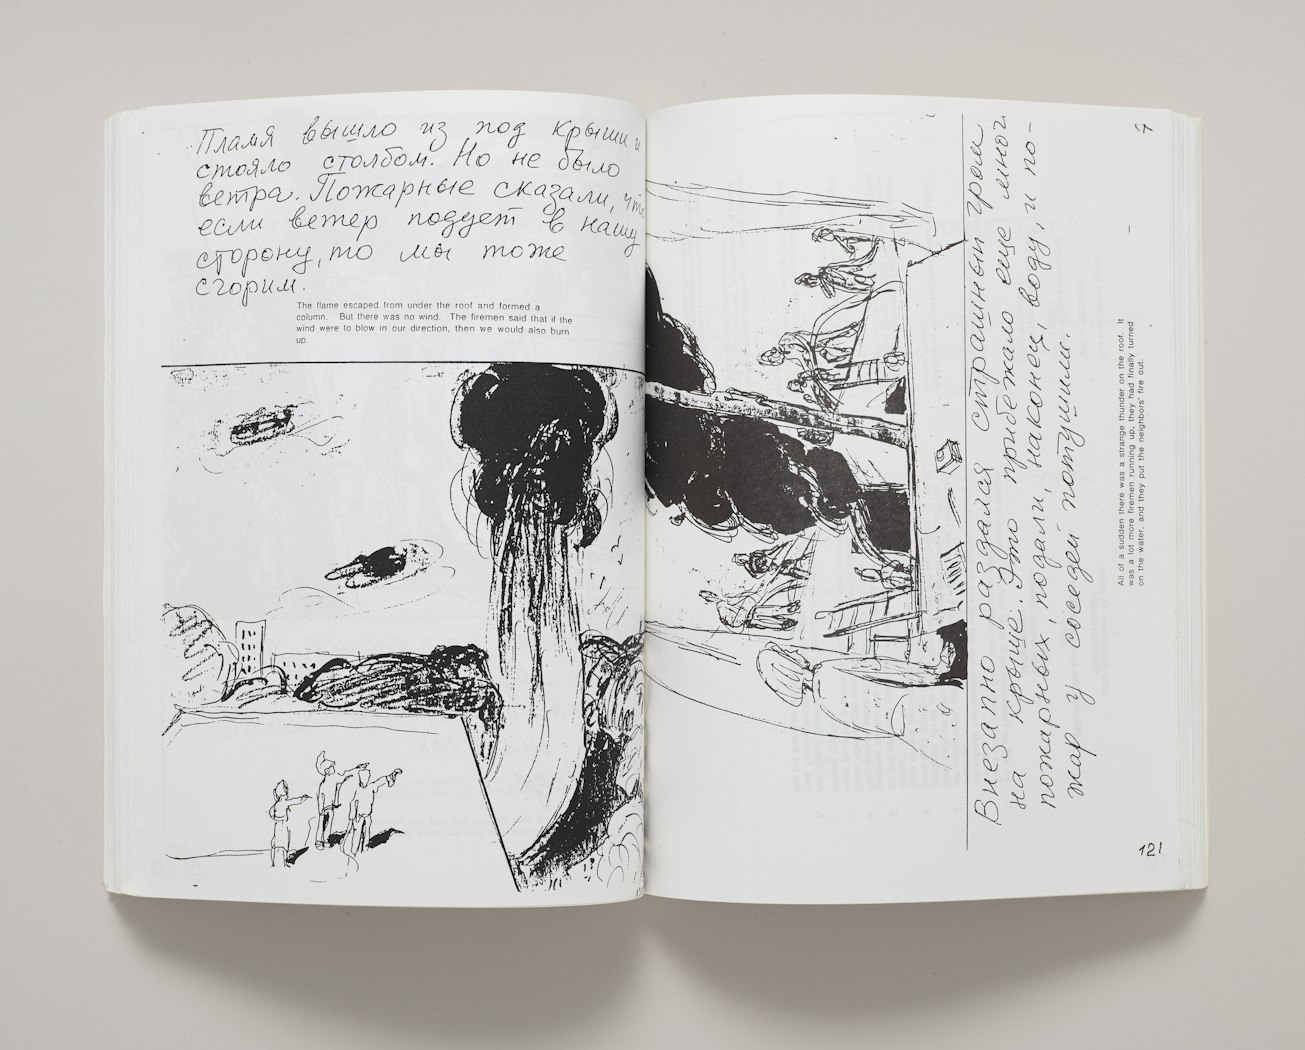 Пламя вышло из под крыши и
стояло столбом. Но не было
ветра. Пожарные сказали, что
если ветер подует в нашу
сторону, то мы тоже
сгорим.
The flame escaped from under the roof and formed a
column. But there was no wind. The firemen said that if the
wind were to blow in our direction, then we would also burn
up.
Внезапно раздался страшный гром
на крыше. Это прибежало еще много
пожарных, подали, наконец, воду, и по-
жар у соседей потушили.
All of a sudden there was a strange thunder on the roof. It
was a lot more firemen running up, they had finally turned
on the water, and they put the neighbors' fire out.
121